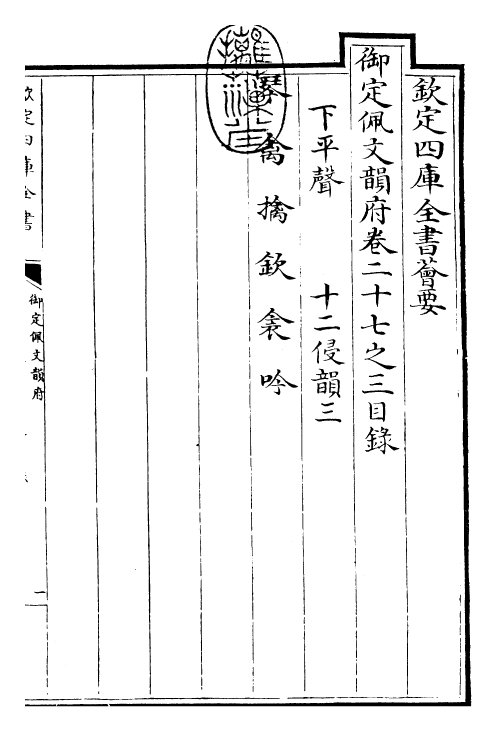 欽定四庫全書薈要
御定佩文韻府卷二十七之三目錄
下平聲　十二侵韻三
琴禽擒欽衾吟
欽定四庫全書
御定佩文韻府
一